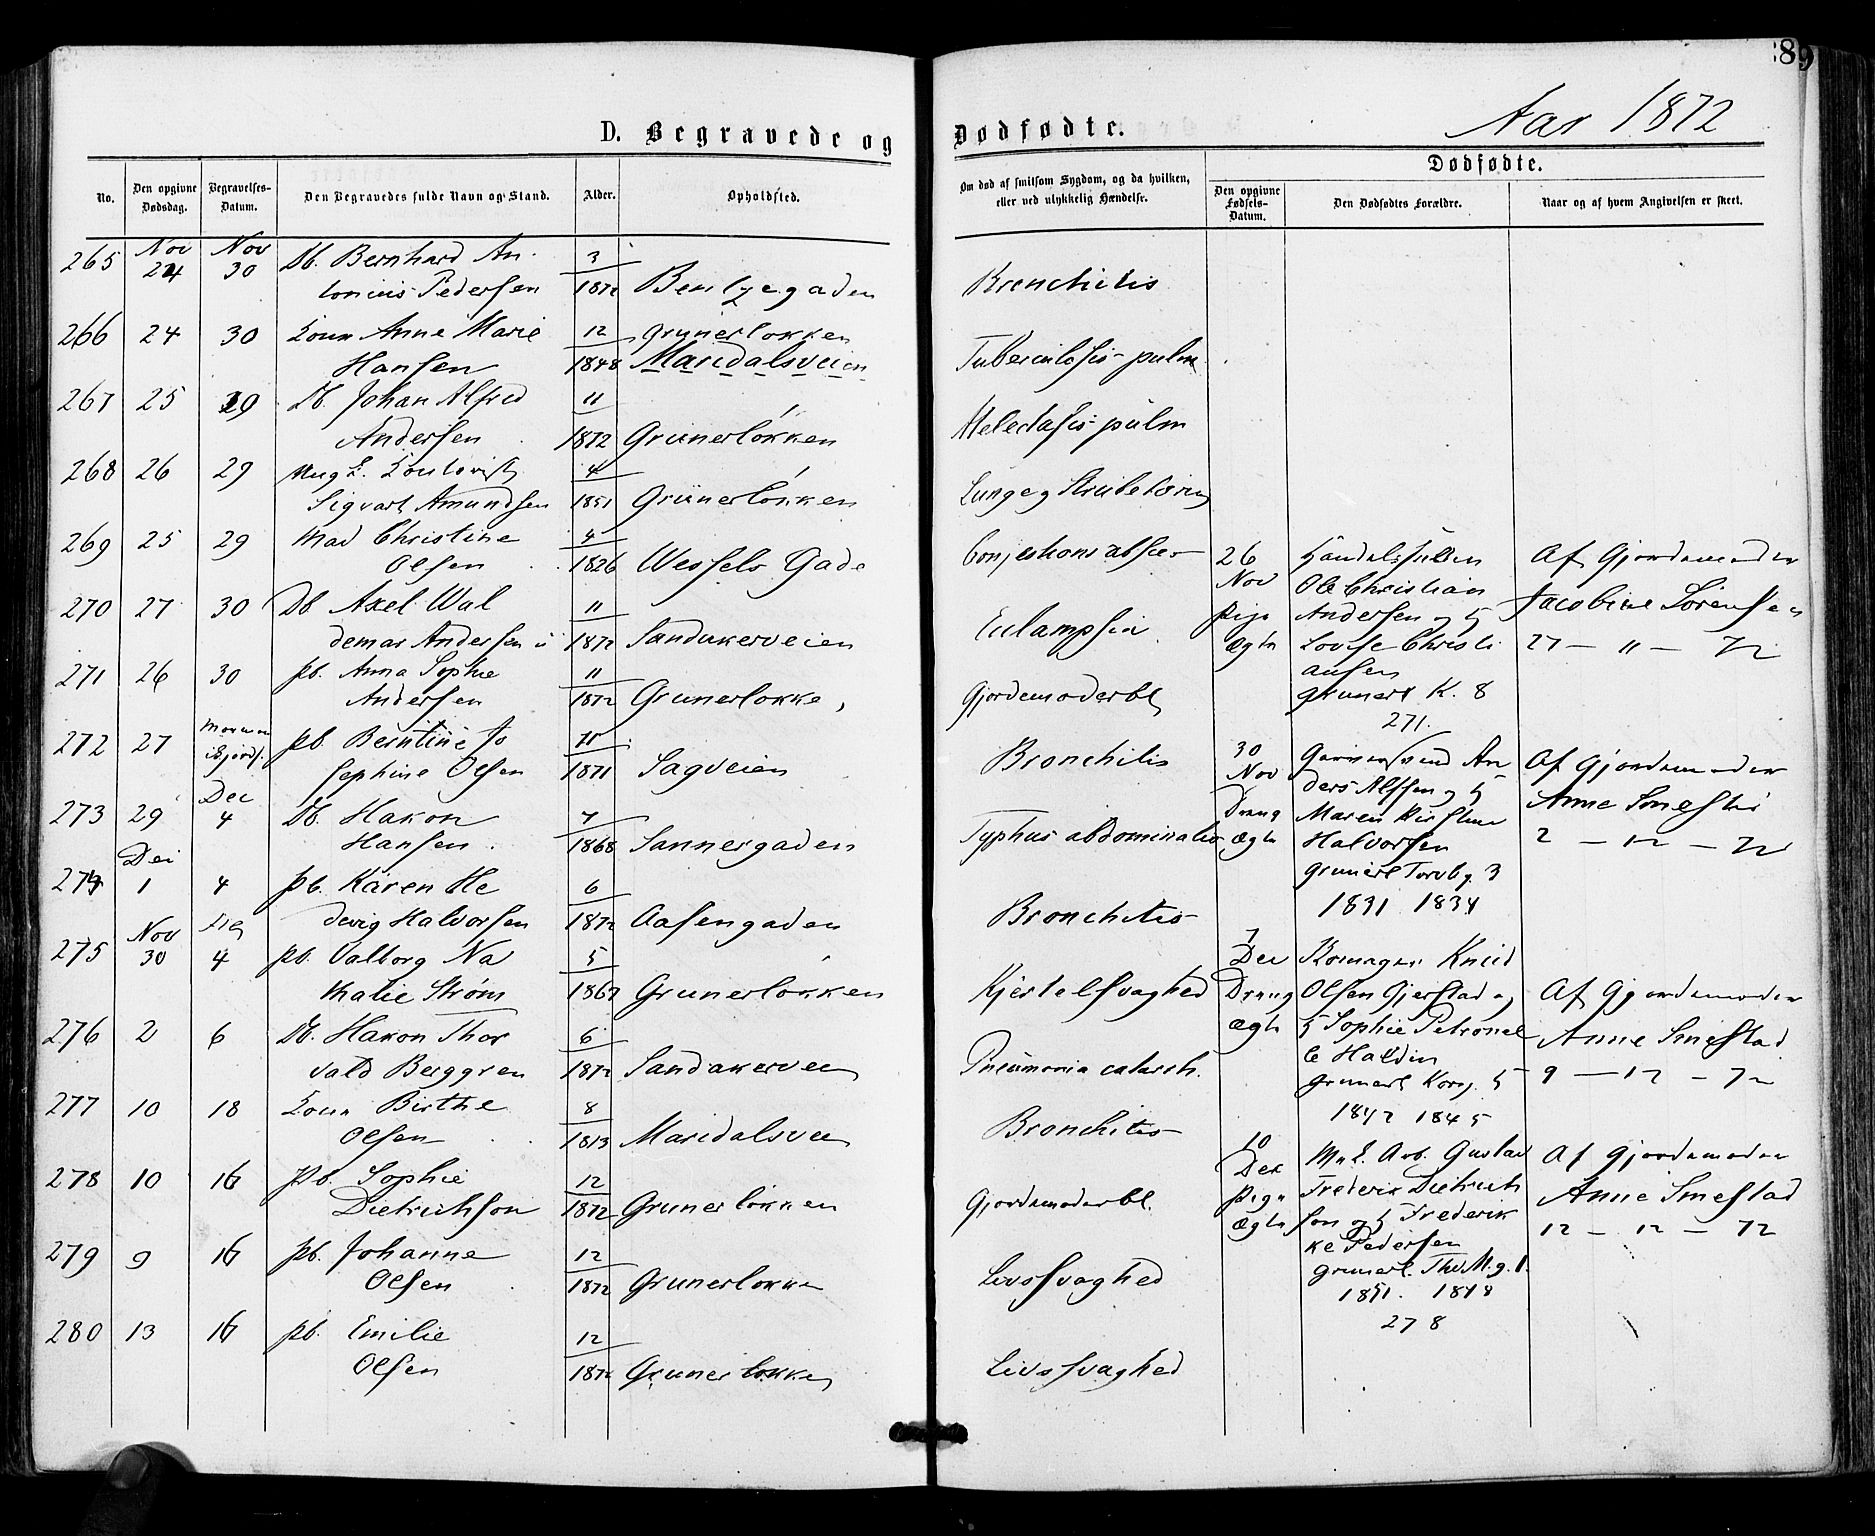 89
D. Begravede og Dødfødte.
Aar 1872
No.
Den opgivne Dødsdag.
Begravelses-Datum.
Den Begravedes fulde Navn og Stand.
Alder.
Opholdsted.
Om død af smitsom Sygdom, og da hvilken, eller ved ulykkelig Hændelse.
Dødfødte.
Den opgivne Fødsels-Datum.
Den Dødfødtes Forældre.
Naar og af hvem Angivelsen er skeet.
265 Nov 24 Nov 30 Db. Bernhard An- 3
tonius Pedersen 1872 Bentzegaden Bronchitis
266 24 30 Anne Marie 12 Grunerløkken
Hansen 1848 Maridalsveien Tuberculosis pulm.
267 25 29 Db. Johan Alfred 11
Andersen 1872 Grünerløkken Atelectasis pulm
268 26 29 Ung
Sigvart Amundsen 1851 Grünerløkken Lunge og
269 25 29 Mad Christine 4
Olsen 1826 Wessels Gade
270 27 30 Db Axel Wal 11
demar Andersen 1872 Sandakerveien Eclampsia
271 26 30 pb. Anna Sophie 11
Andersen 1872 Grunerløkke, Gjordemoderbl
272 27 pb. Berntine Jo 11
sephine Olsen 1871 Sagveien Bronchitis
273 29 Dec 4 Db. Hakon 7
Hansen. 1868 Sannergaden Typhus abdominalis
274 Dec 1 4 pb. Karen He 6
devig Halvorsen 1872 Aasengaden Bronchitis
275 Nov 30 4 pb. Valborg Na 5
thalie Strøm 1867 Grunerløkken Kjertelsvaghed
276 2 6 Db. Hakon Thor 6
vald Berggren 1872 Sandakervee Pneumonia catarrh.
277 10 18 Birthe 8
Olsen 1813 Maridalsvee Bronchitis
278 10 16 pb. Sophie 12
Dietrichson 1872 Grunerløkken Gjordemoderbl.
279 9 16 pb. Johanne 12
Olsen 1872 Grunerløkke Livssvaghed
280 13 16 pb. Emilie 12
Olsen 1872 Grunerløkke Livssvaghed
26 Nov Pige Ægte
Ole Christian
Andersen og H
Lovise Christi
ansen
Grunerl K. 8
271.
Af Gjordemoder
Jacobine Sörensen
27 — 11 — 72
30 Nov Dreng Ægte
An
ders Alfsen og H
Maren Kirstine
Halvorsen
Grunerl Torvbg. 3
1831 1834
Af Gjordemoder
Anne Smestad
2 — 12 — 72
7 Dec Dreng Ægte
Knud
Olsen Gjerstad og
H Sophie Petronel
le Haldin
Grunerl Korsg. 5
1842 1845
Af Gjordemoder
Anne Smestad
9 — 12 — 72
10 Dec Pige Ægte
Arb. Gustav
Frederik Dietrich
son og H Frederik
ke Pedersen
Grunerl. Thv M. g. 1.
1851. 1848
278
Af Gjordemoder
Anne Smestad
12 — 12 — 72